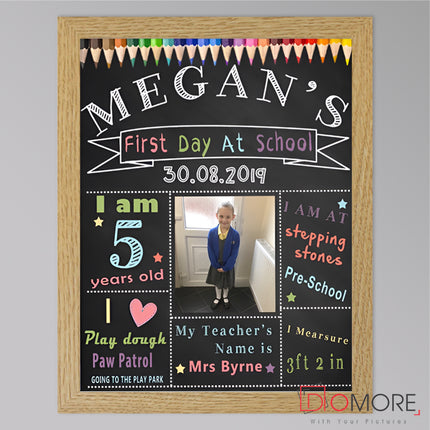 MEGAN'S
First Day At School
30.08.2019
I am
5
years old
I AM AT
stepping
stones
Pre-School
I
Play dough
Paw Patrol
GOING TO THE PLAY PARK
My Teacher's
Name is
Mrs Byrne
I Mearsure
3ft 2 in
DOMORE
With Your Pictures